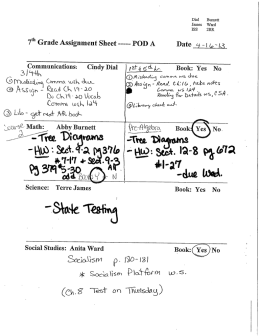 Dial Burnett
James Ward
7th Grade Assignment Sheet — POD A Date 4-16-13
Communications: Cindy Dial
Book: Yes No
3/4th
① Misleading Comma wsh due
② Assign - Read Ch 19-20
Do Ch 19-20 Vocab
Comma wsh 124
③ Lib - get next AR book
1st & 5th
① Misleading comma ws due
② Assign - Read
Comma ws 124
Reading for Details ws,
③ Library check out.
Math: Abby Burnett
-Tree Diagrams
-HW: Sect. 9-2 pg 376
#7-17 + Sect. 9-3
Pg 379 5-30
odd
All
Pre-Algebra Book: Yes No
-Tree Diagrams
-HW: Sect. 12-8 pg 672
#1-27
-due Wed.
Science: Terre James
Book: Yes No
-State Testing
Social Studies: Anita Ward
Book: Yes No
Socialism p. 130-131
* Socialism Platform w.s.
(Ch. 8 Test on Thursday)